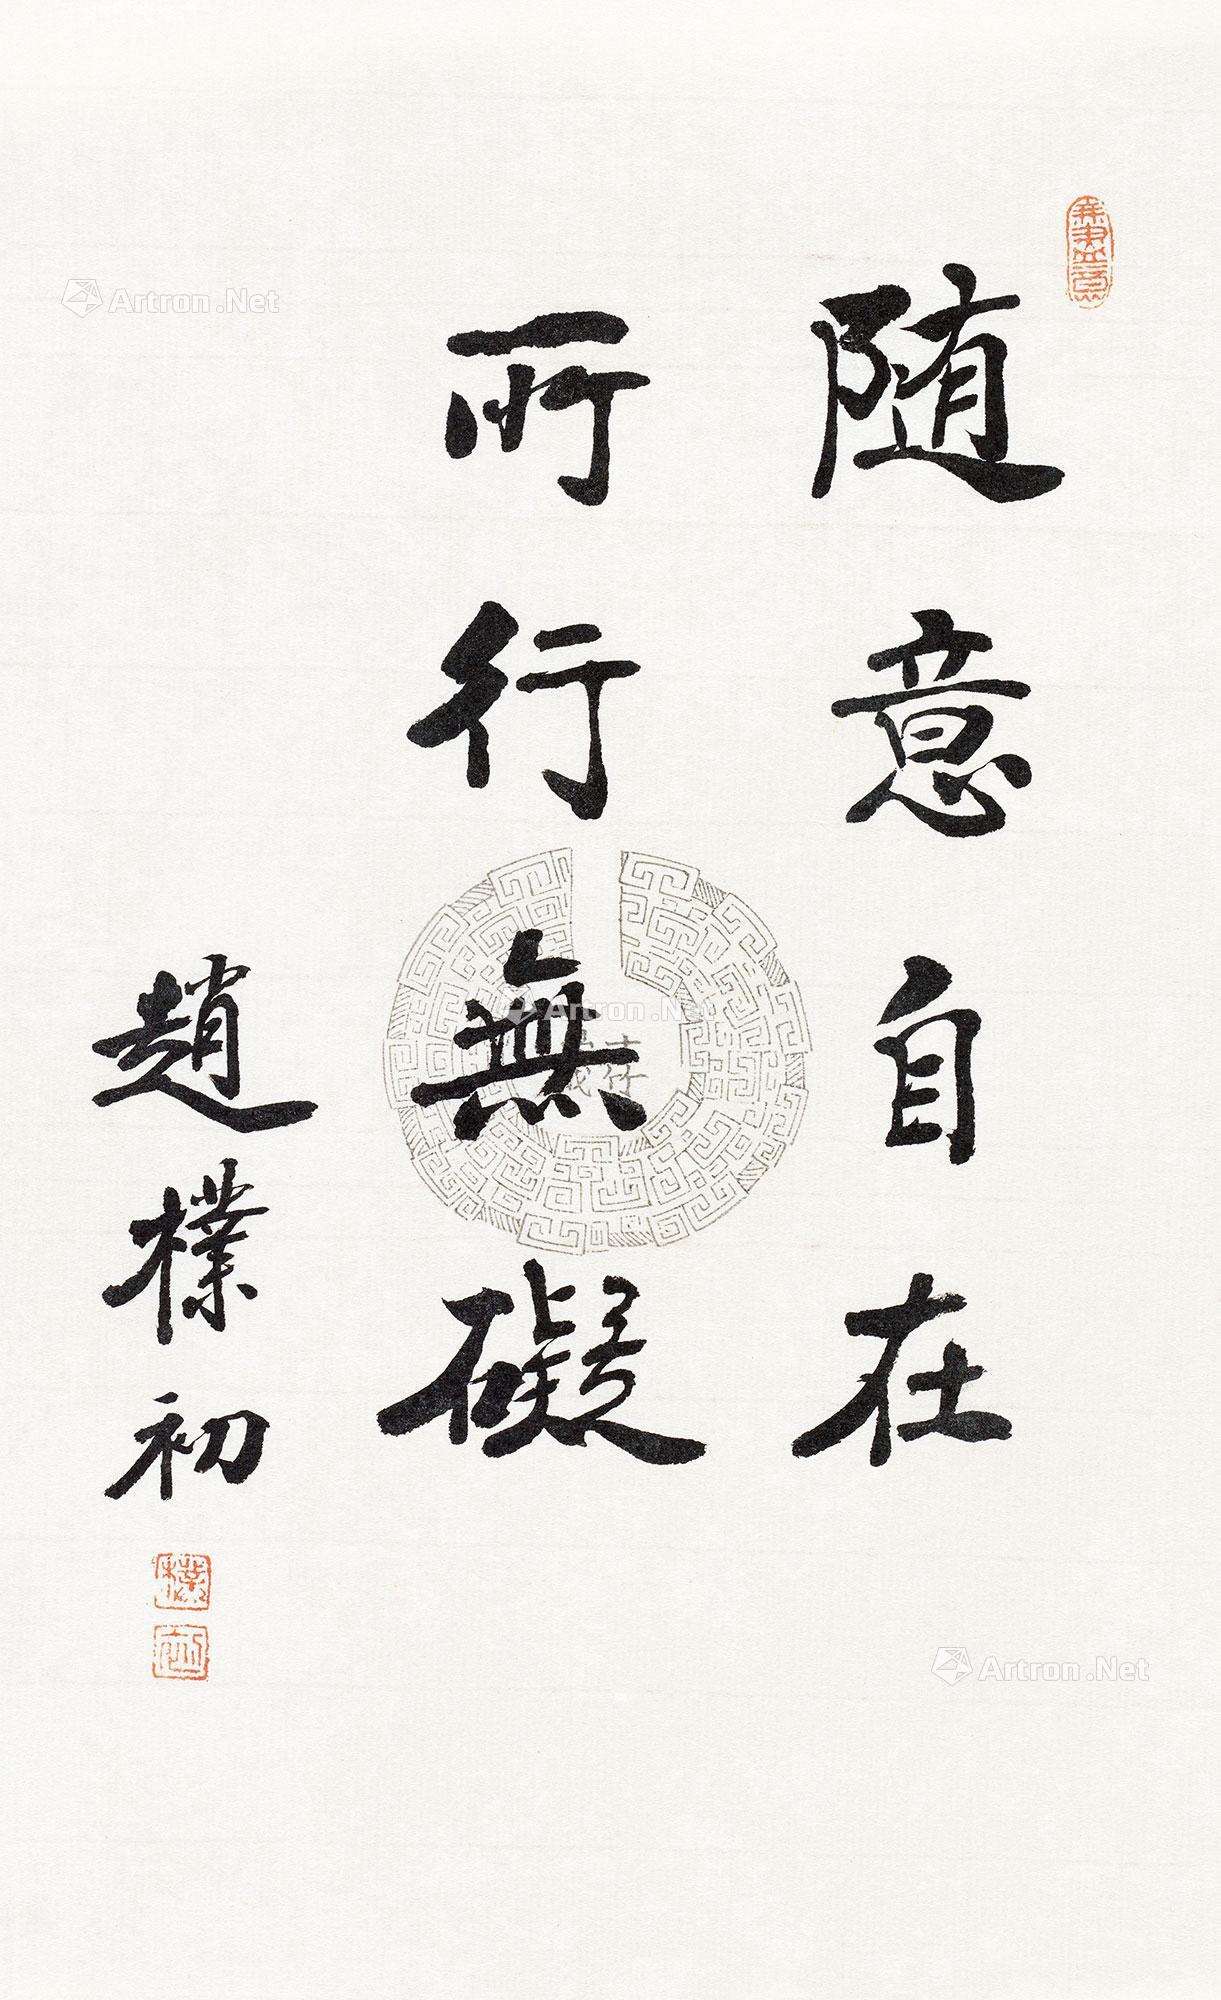 随意自在
所行無礙
趙樸初
無盡意
樸初
Artron.Net
Artron.Net
Artron.Net